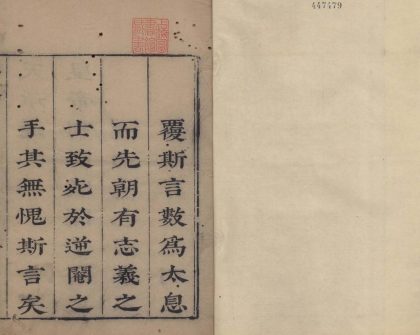 447479
覆斯言數爲太息
而先朝有志義之
士致死於逆閹之
手其無愧斯言矣